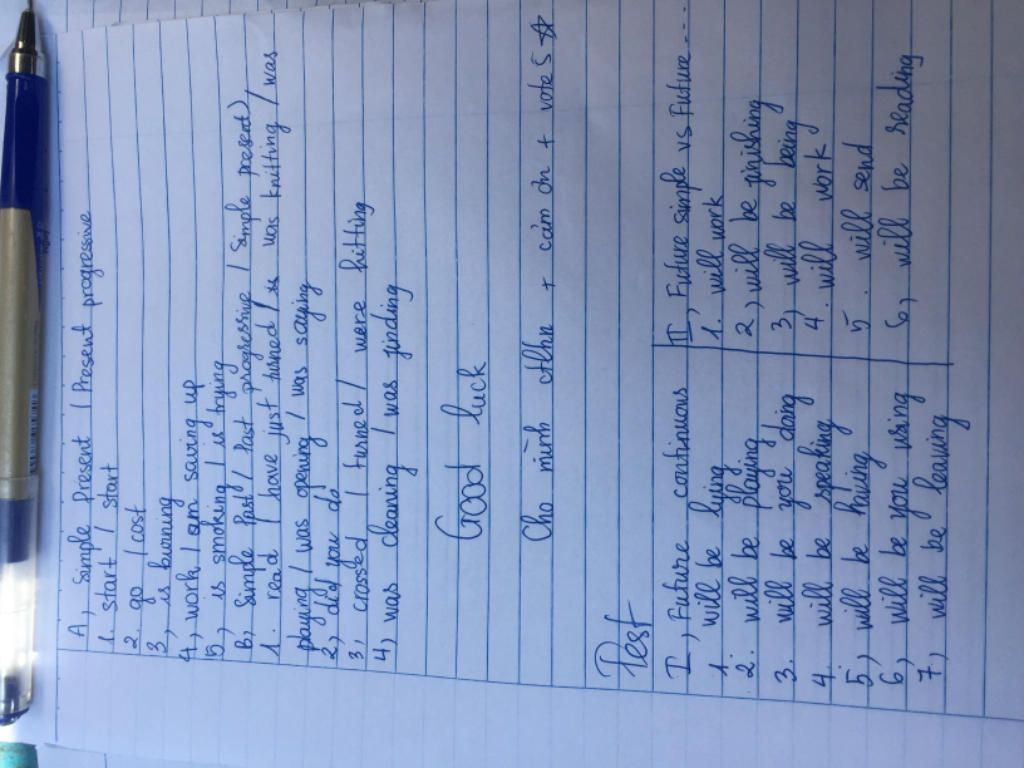 A, Simple Present / Present progressive
1. start / start
2. go / cost
3, is burning
4, work / am saving up
5) is smoking / is trying
B, Simple Past / Past progressive / Simple present)
1. read / have just turned / is was knitting / was
paying / was opening / was saying
2, did you do
3, crossed / turned / were hitting
4) was cleaning / was finding
Good luck
Cho mình ctlhn + cảm ơn + vote 5 ☆
Test
I, Future continuous
1. will be lying
2. will be playing
3. will be you doing
4. will be speaking
5) will be having
6) will be you using
7) will be leaving
II, Future simple vs Future ...
1. will work
2, will be finishing
3, will be being
4. will work
5. will send
6, will be reading